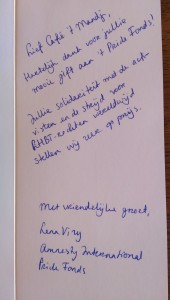 Lief Café 't Mandje,
Hartelijk dank voor jullie
mooie gift aan 't Pride Fonds!
Jullie solidariteit met de acti-
visten in de strijd voor
RHBT-rechten wereldwijd
stellen wij zeer op prijs.
Met vriendelijke groet,
Lena
Amnesty International
Pride Fonds